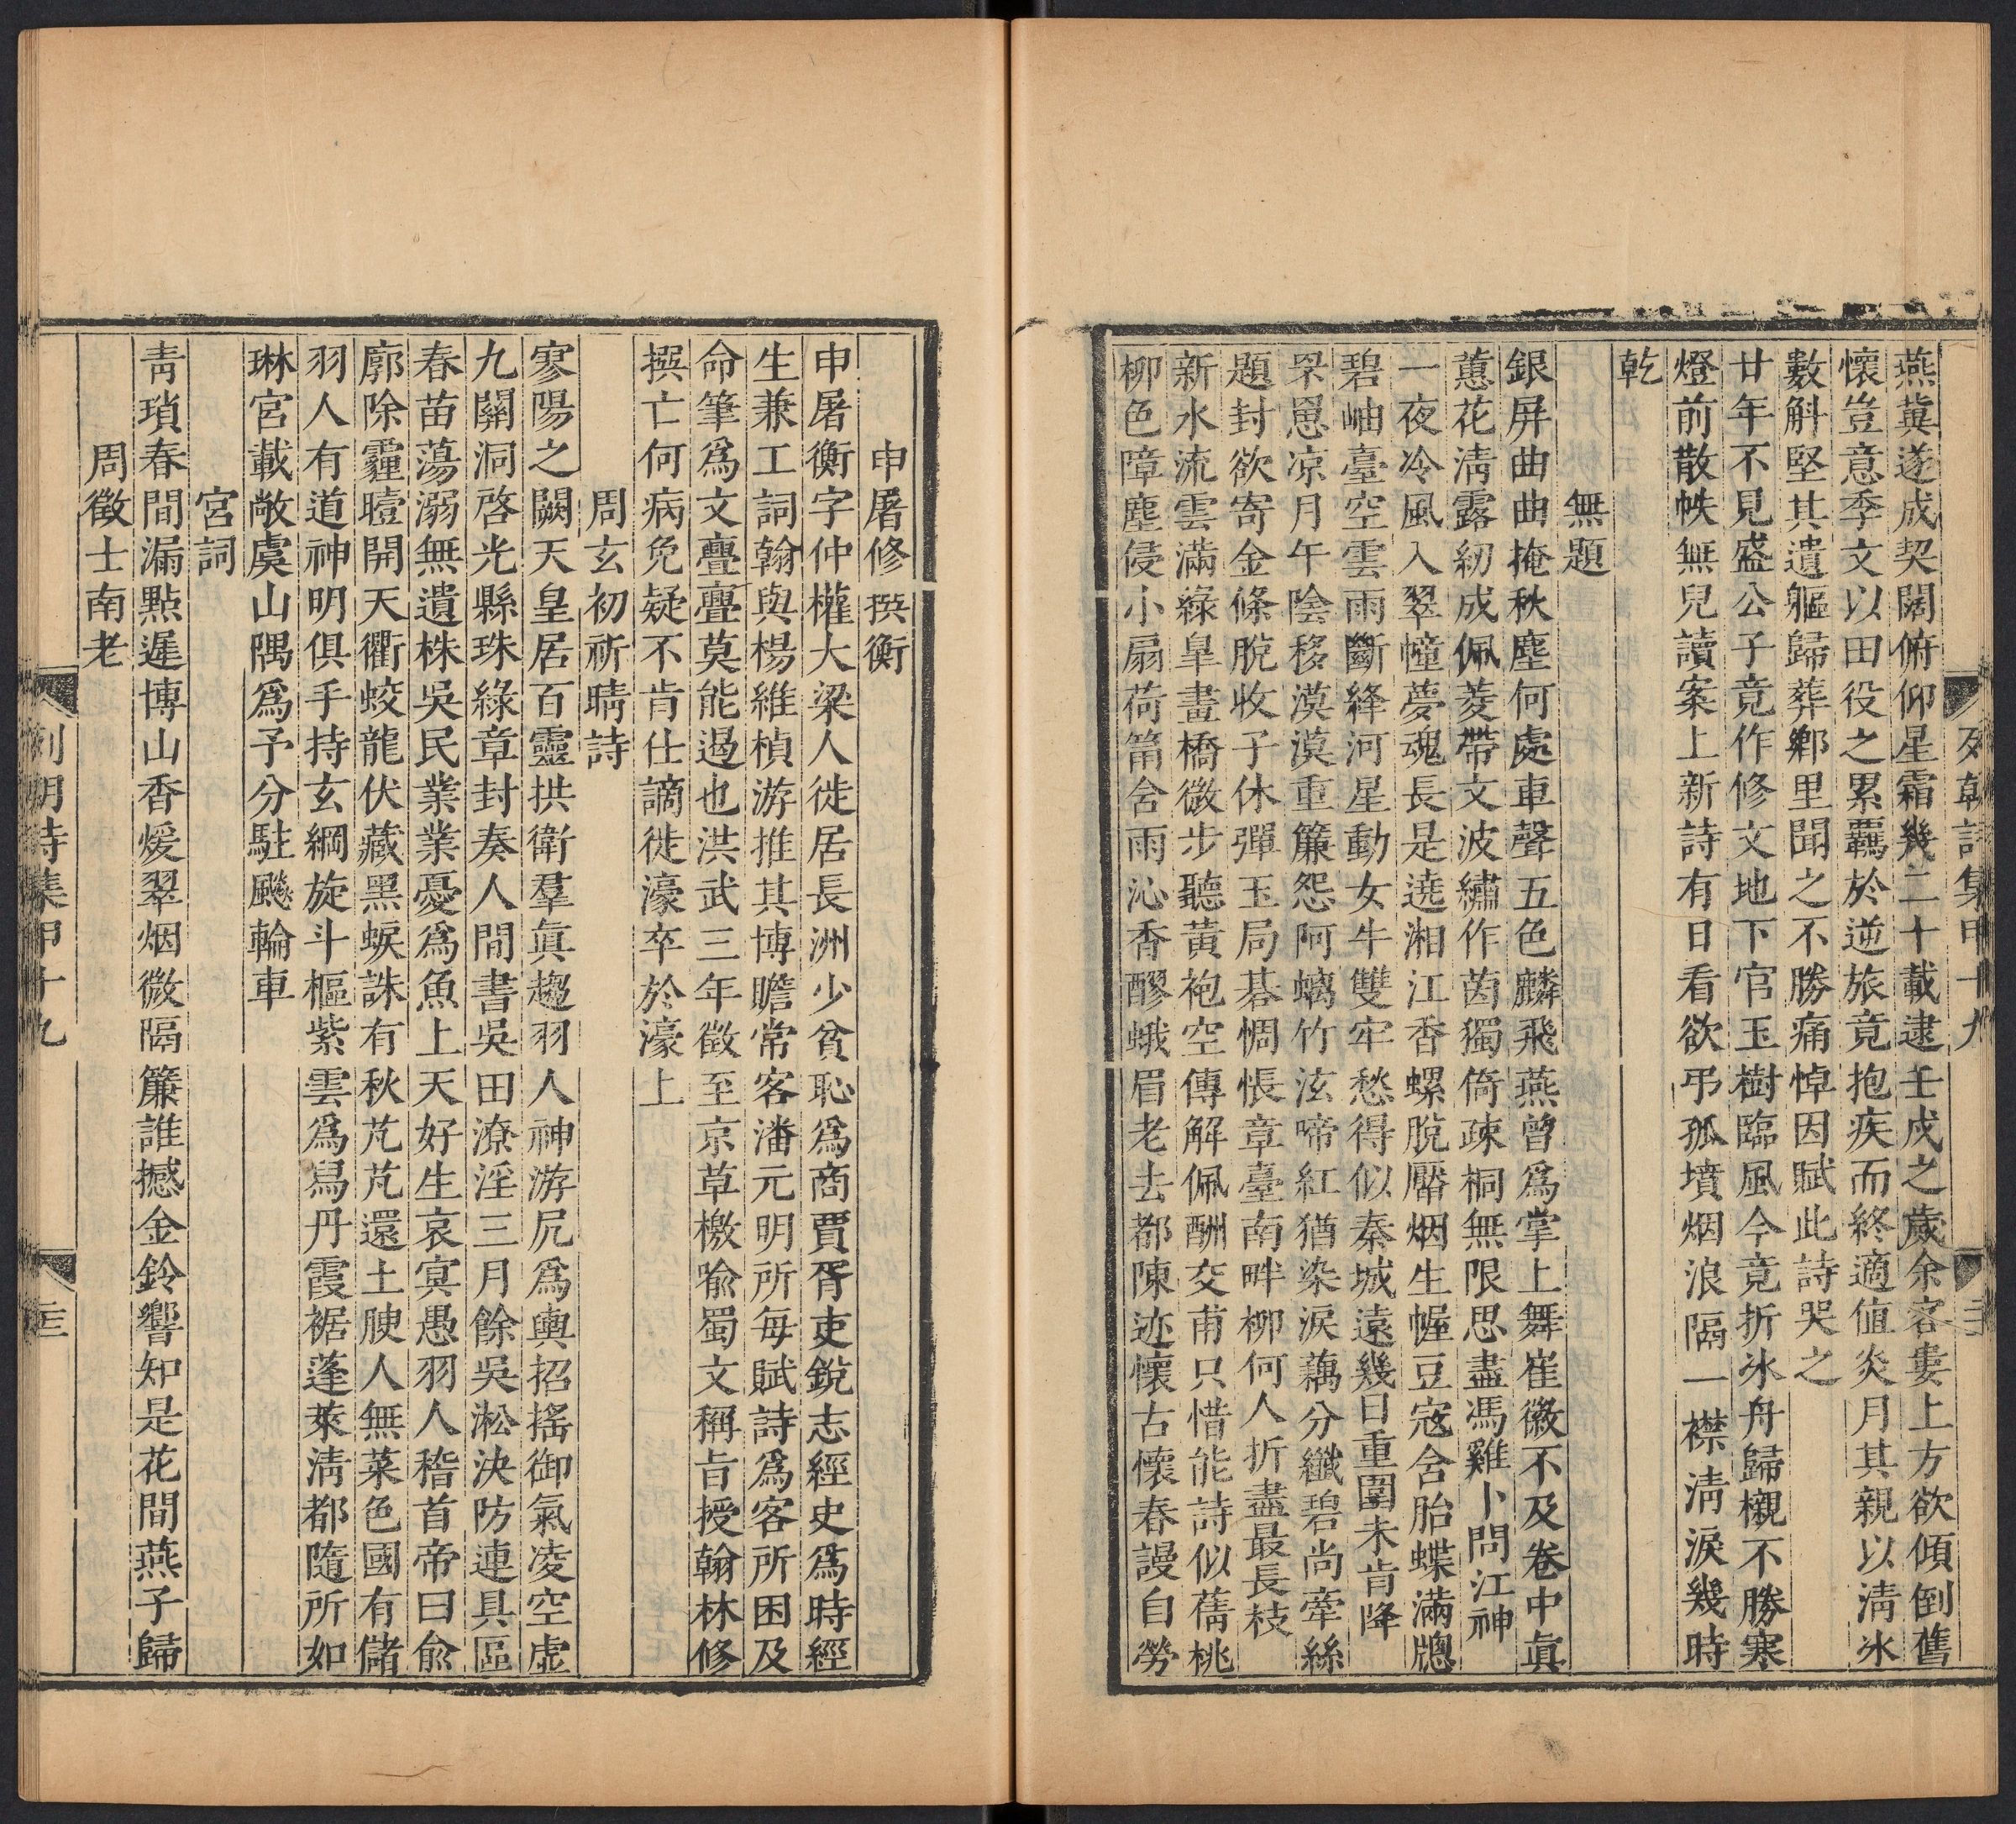 列朝詩集甲十九
燕冀遂成契闊俯仰星霜幾二十載逮壬戌之歲余客婁上方欲傾倒舊
懷豈意季文以田役之累羈於逆旅竟抱疾而終適值炎月其親以淸冰
數斛堅其遺軀歸葬鄕里聞之不勝痛悼因賦此詩哭之
廿年不見盛公子竟作修文地下官玉樹臨風今竟折冰舟歸櫬不勝寒
燈前散帙無兒讀案上新詩有日看欲弔孤墳烟浪隔一襟淸淚幾時
乾
無題
銀屏曲曲掩秋塵何處車聲五色麟飛燕曾爲掌上舞崔徽不及卷中眞
蕙花淸露紉成佩菱帶文波繡作茵獨倚疎桐無限思盡馮雞卜問江神
一夜冷風入翠幢夢魂長是遶湘江香螺脫靨烟生幄豆寇含胎蝶滿牕
碧岫臺空雲雨斷絳河星動女牛雙牢愁得似秦城遠幾日重圍未肯降
罘罳凉月午陰移漠漠重簾怨阿螭竹泫啼紅猶染淚藕分纖碧尚牽絲
題封欲寄金條脫收子休彈玉局碁惆悵章臺南畔柳何人折盡最長枝
新水流雲滿綠皐畫橋微步聽黃袍空傳解佩酬交甫只惜能詩似舊桃
柳色障塵侵小扇荷筩含雨沁香醪蛾眉老去都陳迹懷古懷春謾自勞
申屠修撰衡
申屠衡字仲權大梁人徙居長洲少貧恥爲商賈胥吏銳志經史爲時經
生兼工詞翰與楊維楨游推其博贍常客潘元明所每賦詩爲客所困及
命筆爲文亹亹莫能遏也洪武三年徵至京草檄喩蜀文稱旨授翰林修
撰亡何病免疑不肯仕謫徙濠卒於濠上
周玄初祈晴詩
寥陽之闕天皇居百靈拱衛羣眞趨羽人神游尻爲輿招搖御氣凌空虛
九關洞啓光縣珠綠章封奏人間書吳田潦淫三月餘吳淞決防連具區
春苗蕩溺無遺株吳民業業憂爲魚上天好生哀㝠愚羽人稽首帝曰俞
廓除霾曀開天衢蛟龍伏藏黑蜧誅有秋芃芃還土腴人無菜色國有儲
羽人有道神明俱手持玄綱旋斗樞紫雲爲舃丹霞裾蓬萊淸都隨所如
琳宮載敞虞山隅爲予分駐飈輪車
宮詞
靑瑣春間漏點遲博山香煖翠烟微隔簾誰撼金鈴響知是花間燕子歸
周徵士南老
列朝詩集甲十九